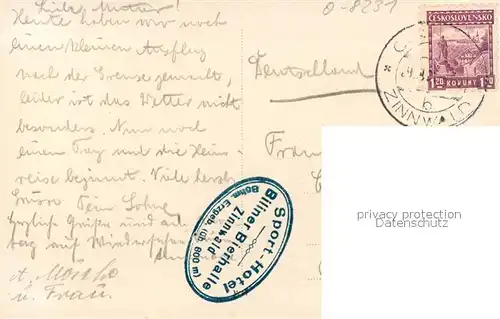 Liebe Mutter!
Heute haben wir noch
einen kleinen Ausflug
nach der Grenze gemacht,
leider ist das Wetter nicht
besonders. Nun noch
einen Tag und die Heim-
reise beginnt. Viele herzl.
Grüsse Dein Sohn
Herzliche Grüße und
auf Wiedersehen
u. Frau.
0-8231
Deutschland
Frau
ČESKOSLOVENSKO
1.20 KORUNY 1.20
ZINNWALD
6
Sport-Hotel
Biliner Bierhalle
Zinnwald
Böhm. Erzgeb. (üb. 800 m)
privacy protection
Datenschutz